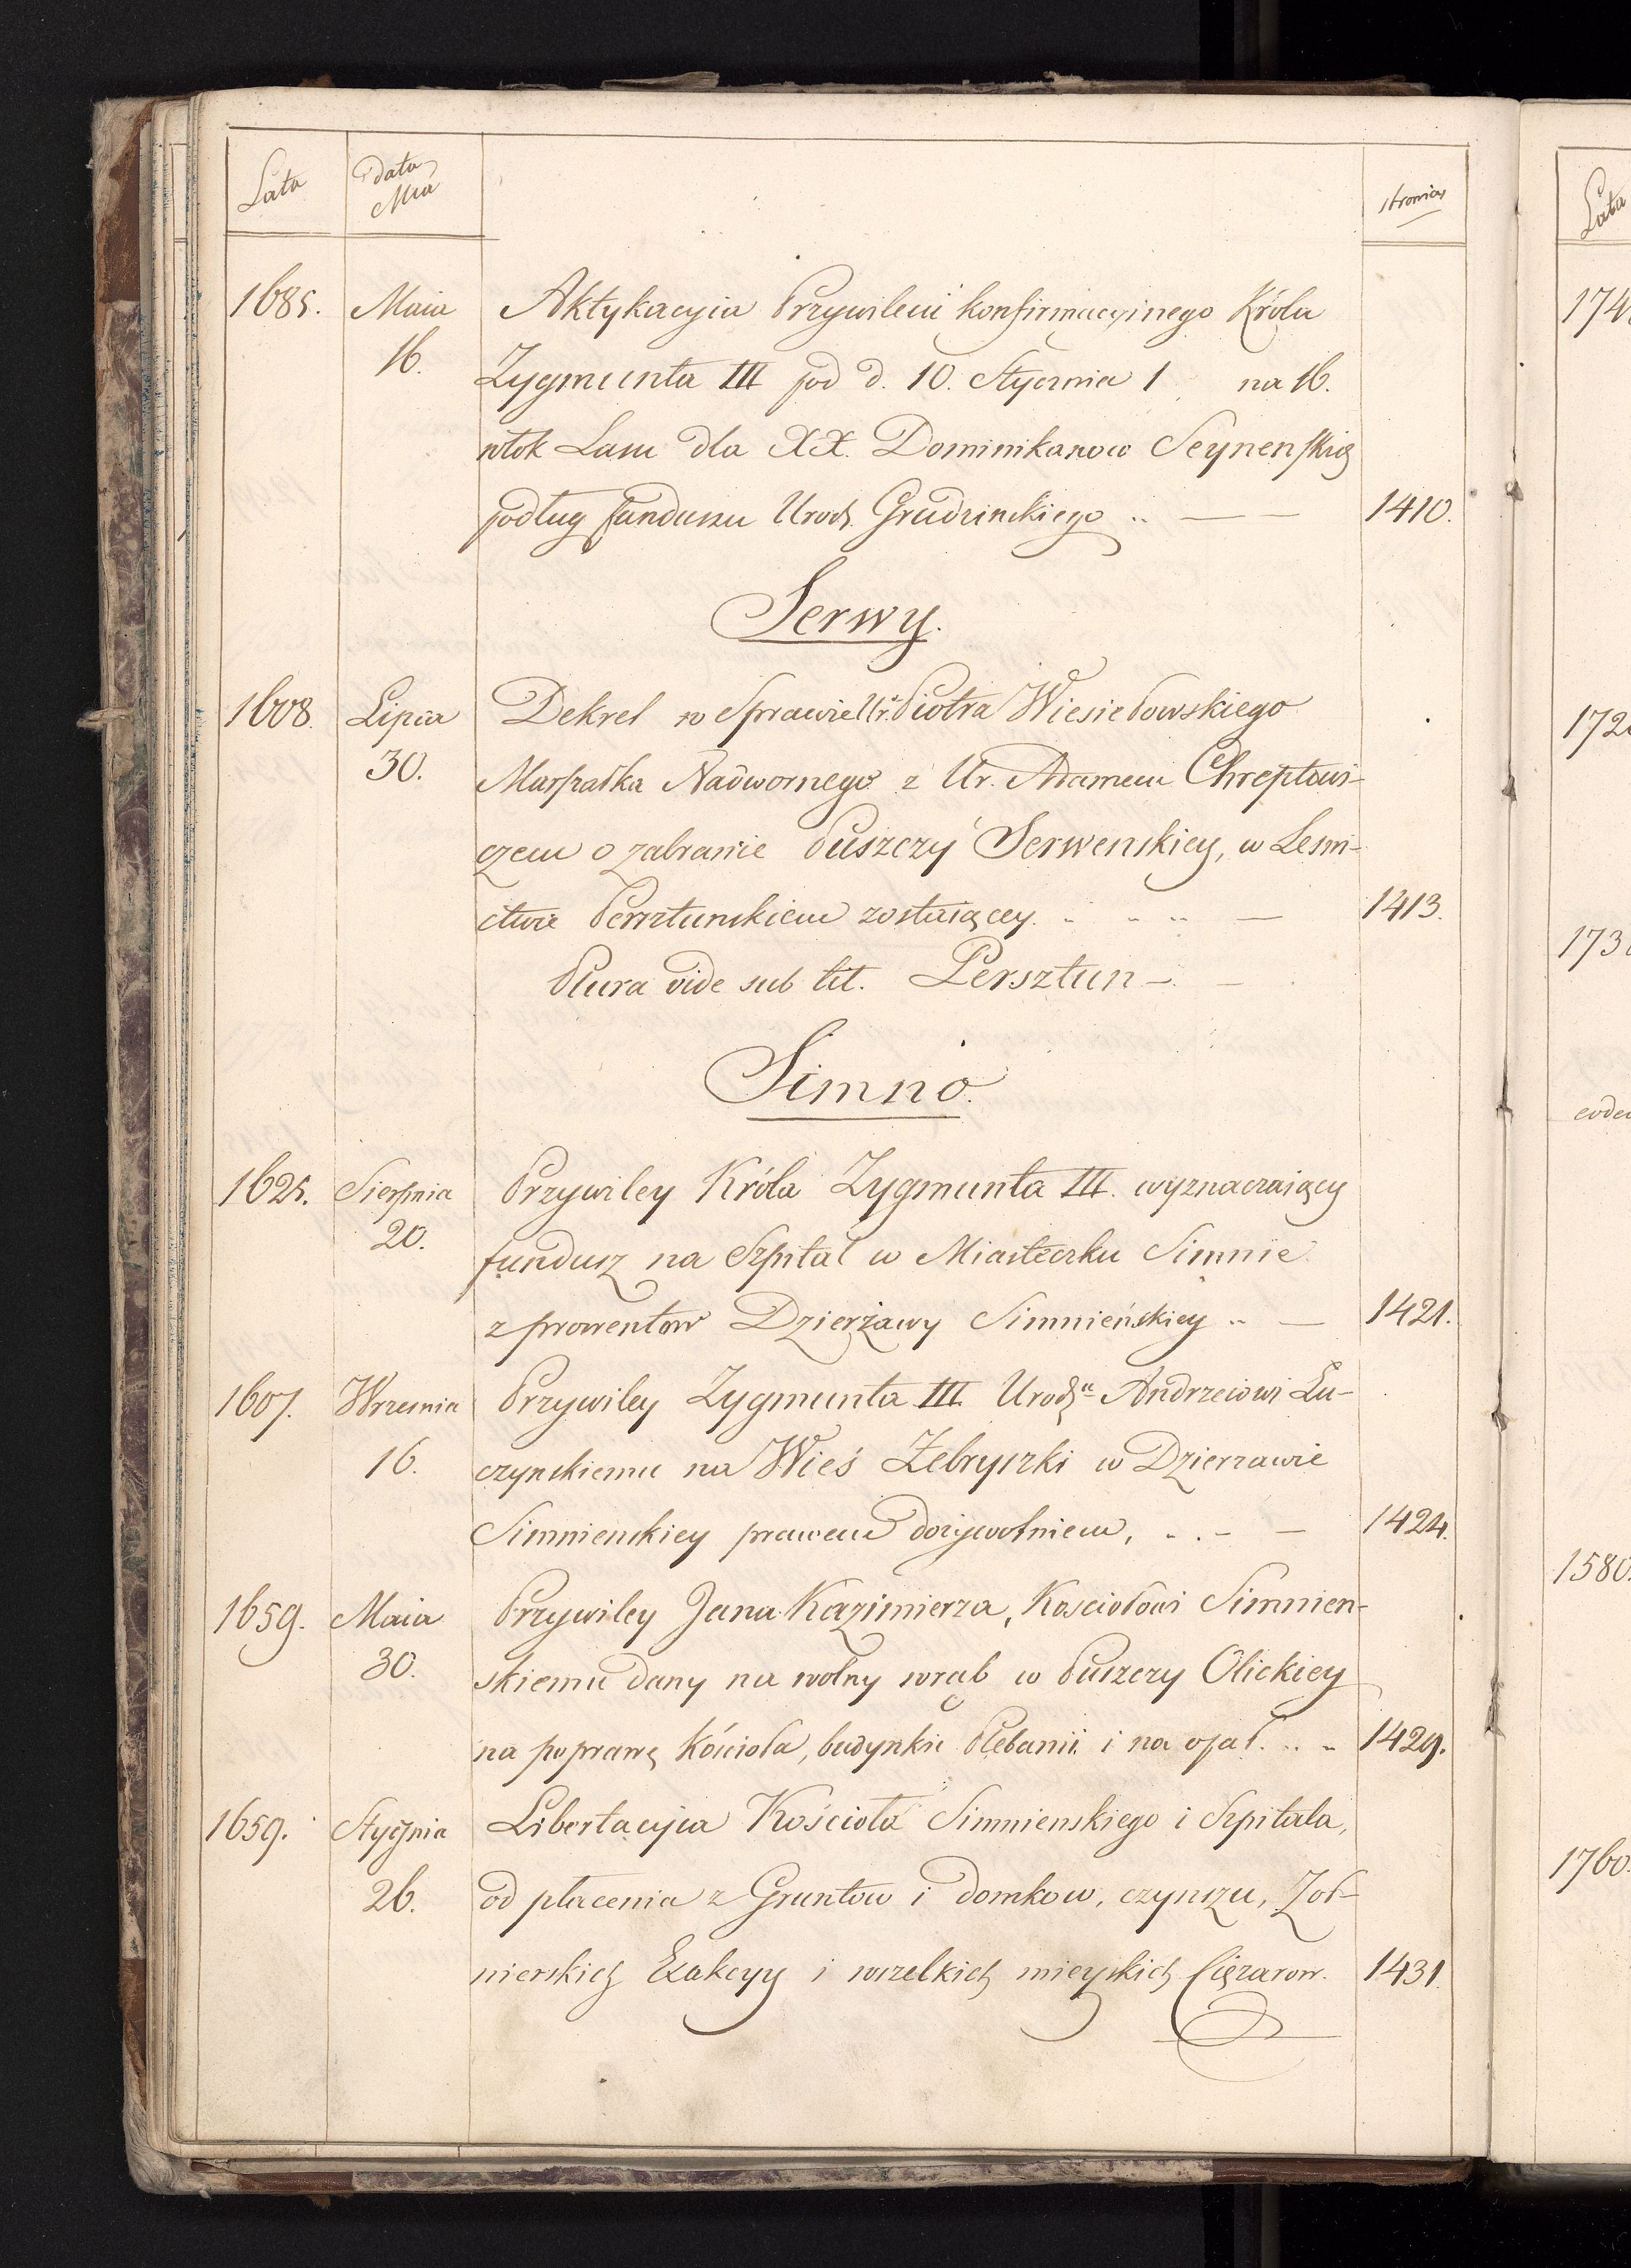 Lata
Data
Mca
stronica
1685. Maia Aktykacyia Przywileiu konfirmacyinego Króla
16. Zygmunta III pod d. 10. Stycznia 1 na 16.
włok Lasu dla XX. Dominikanow Seynenskich
podług funduszu Urodz. Grudzinskiego .. — — 1410.
Serwy.
1608. Lipca Dekret w Sprawie Ur. Piotra Wiesiołowskiego
30. Marszałka Nadwornego z Ur. Adamem Chreptowi-
czem o zabranie Puszczy Serwenskiey, w Lesni-
ctwie Persztunskiem zostaiącey. .. .. .. — 1413.
Plura vide sub tit. Persztun —
Simno.
1625. Sierpnia Przywiley Króla Zygmunta III. wyznaczaiący
20. fundusz na Szpital w Miasteczku Simnie
z prowentow Dzierżawy Simnieńskiey .. — 1421.
1607. Wrzesnia Przywiley Zygmunta III. Urodz. Andrzeiowi Lu-
16. czynskiemu na Wieś Żebryszki w Dzierzawie
Simnienskiey prawem dożywotniem, .. — — 1424.
1659. Maia Przywiley Jana Kazimierza, Kosciołowi Simnien-
30. skiemu dany na wolny wrąb w Puszczy Olickiey
na poprawę Kościoła, budynku Plebanii i na opał. .. .. 1429.
1659. Stycznia Libertacyia Kościoła Simnienskiego i Szpitala,
26. od płacenia z Gruntow i domkow, czynszu, Żoł-
nierskich Exakcyy i wszelkich mieyskich Ciężarow. 1431.
Lata
174
172
173
eode
1580.
1760.